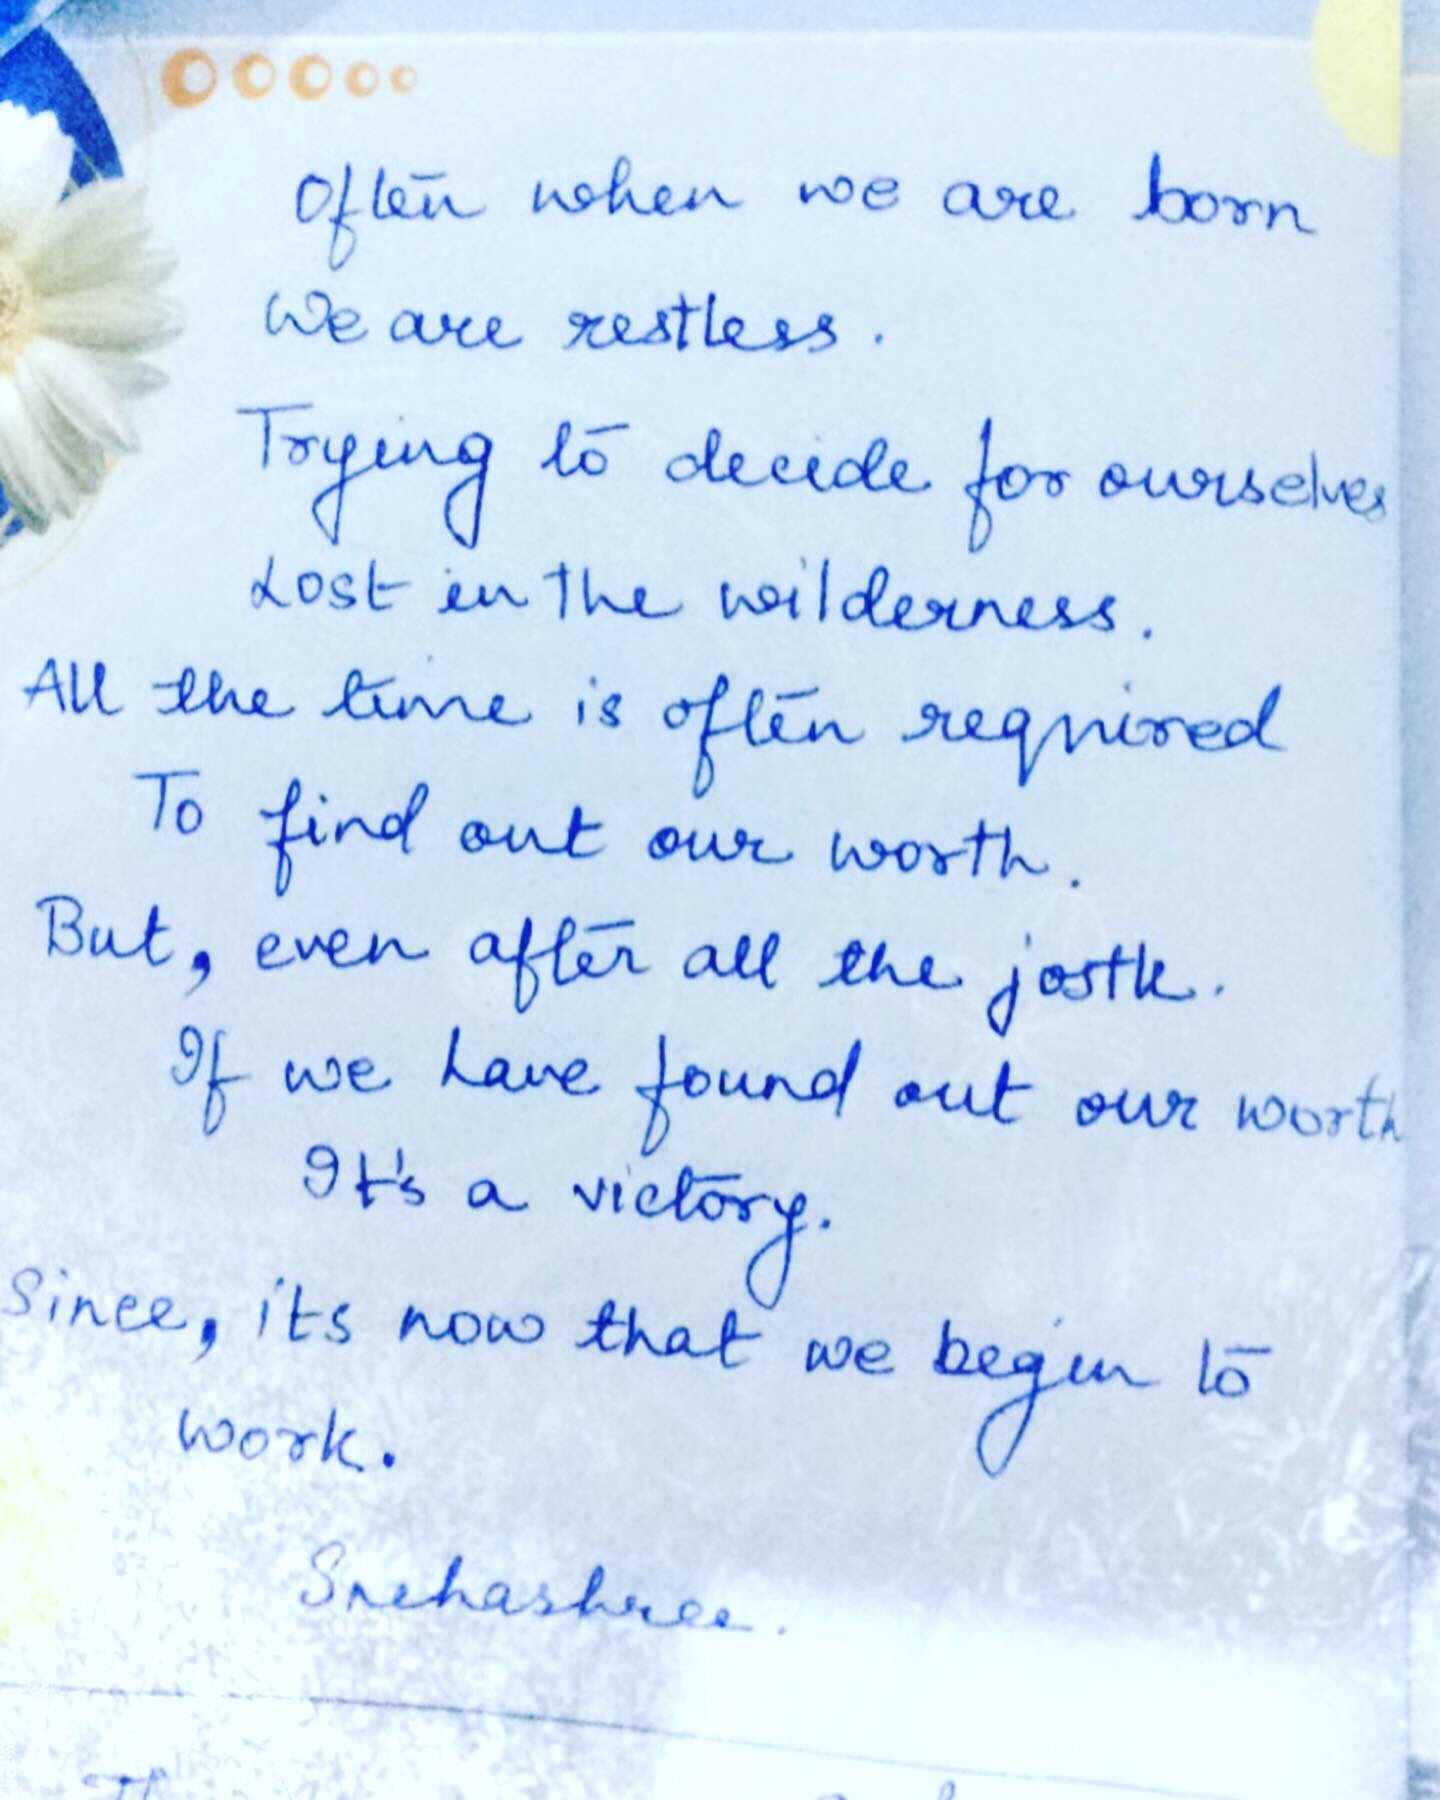 Often when we are born
We are restless.
Trying to decide for ourselves
Lost in the wilderness.
All the time is often required
To find out our worth.
But, even after all the jostle.
If we have found out our worth
It's a victory.
Since, its now that we begin to
work.
Snehashree.